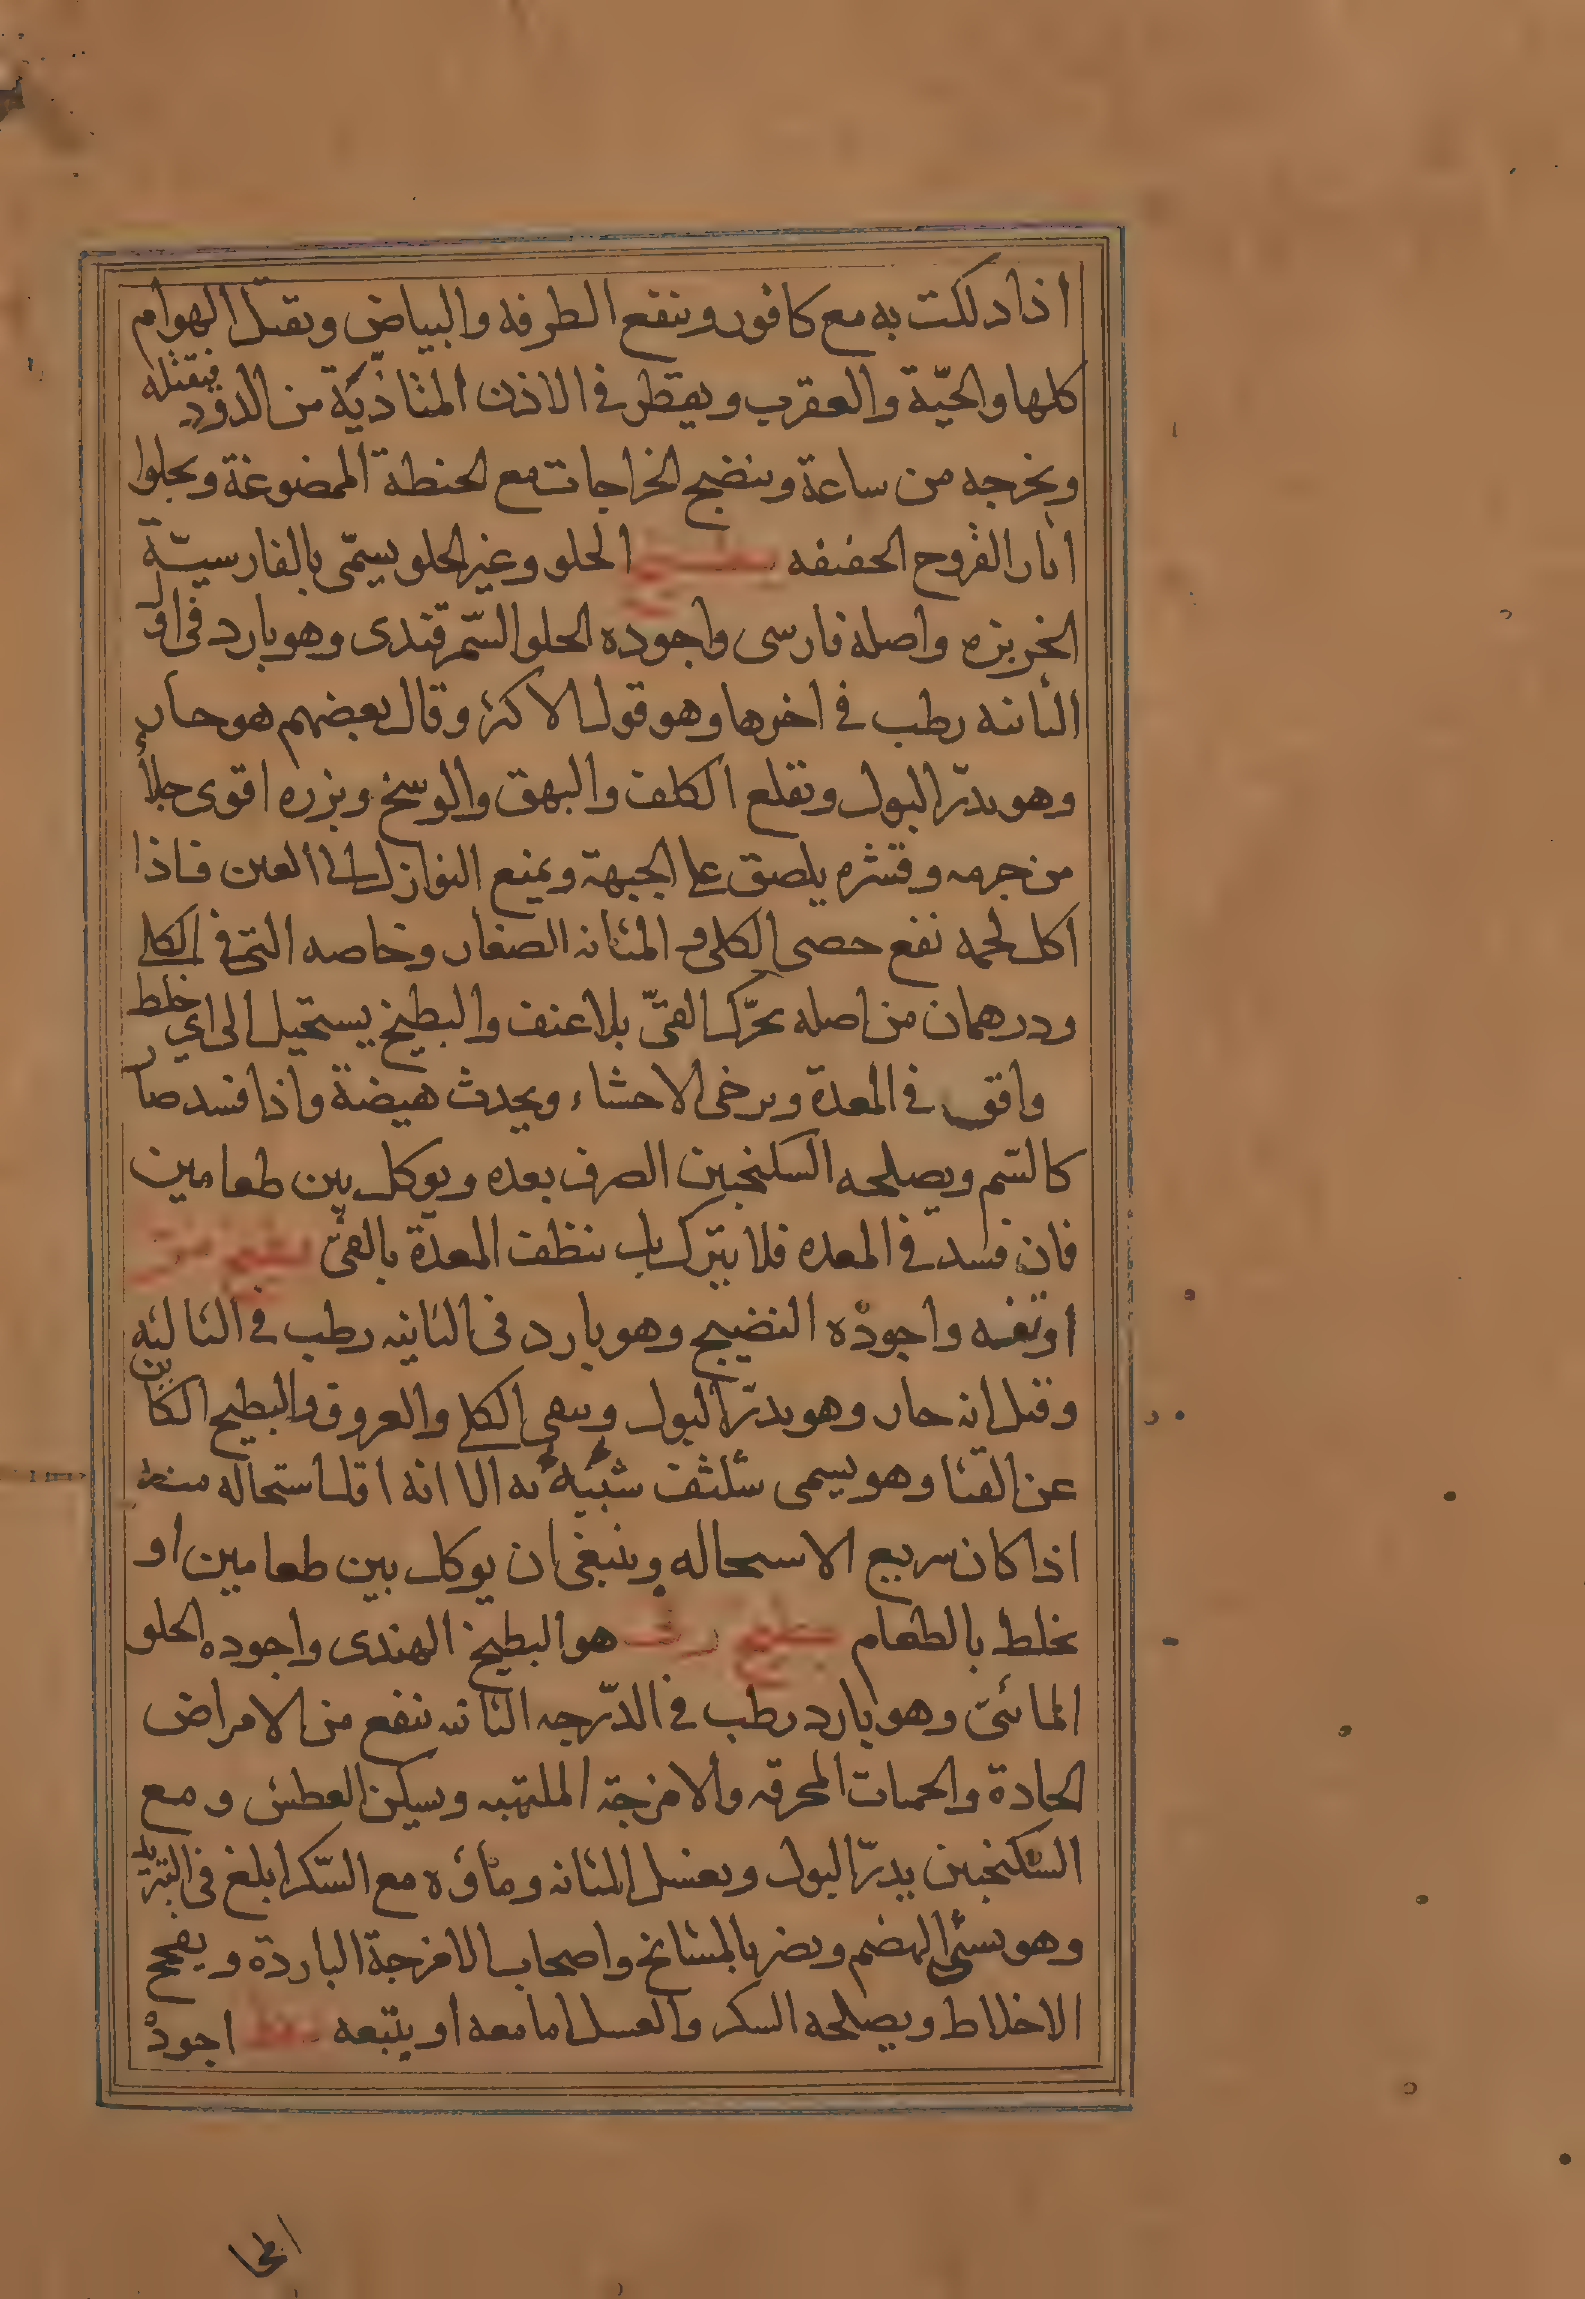 اذا دلكت به مع كافور وينفع الطرفه والبياض ويقتل الهوام
كلها والحيّة والعقرب ويقطر في الاذن المتاذيّة من الدود فيقتله
ويخرجه من ساعة وينضج الخراجات مع الحنطة الممضوغة ويجلوا
اثار القروح الخفيفه بطيخ الحلو وغير الحلو يسمّى بالفارسيّة
الخربزه واصله فارسى واجوده الحلو السّمرقندى وهو بارد فى اول
الثانيه رطب في اخرها وهو قول الاكثر وقال بعضهم هو حار
وهو يدرّ البول ويقلع الكلف والبهق والوسخ وبزره اقوى جلاءً
من جرمه وقشره يلصق على الجبهة ويمنع النوازل الى العين فاذا
اكل لحمه نفع حصى الكلى و المثانه الصغار وخاصه التى في الكلى
ودرهمان من اصله يحرّك القئّ بلا عنف والبطيخ يستحيل الى اي خلط
وافق في المعدة ويرخى الاحشاء ويحدث هيضة واذا فسد صار
كالسّم ويصلحه السكنجبين الصرف بعده ويوكل بين طعامين
فان فسد في المعده فلا يترك بل ينظف المعدة بالقئّ بطيخ
واجوده النضيج وهو بارد فى الثانيه رطب في الثالثه
وقيل انه حار وهو يدرّ البول وينقى الكلى والعروق والبطيخ الكاين
عن القثا وهو يسمى شبيه به الا انه اقل استحاله منه
اذا كان سريع الاستحاله وينبغى ان يوكل بين طعامين او
يخلط بالطعام بطيخ رقى هو البطيخ الهندى واجوده الحلو
المائىّ وهو بارد رطب في الدّرجه الثانيه ينفع من الامراض
الحادة والحميات المحرقه والامزجة الملتهبه ويسكن العطش ومع
السّكنجبين يدرّ البول ويغسل المثانه وماؤه مع السّكر ابلغ فى التبريد
وهو يسئ الهضم ويضر بالمشائخ واصحاب الامزجة الباردة ويفجج
الاخلاط ويصلحه السكر والعسل اما معه او يتبعه اجوده